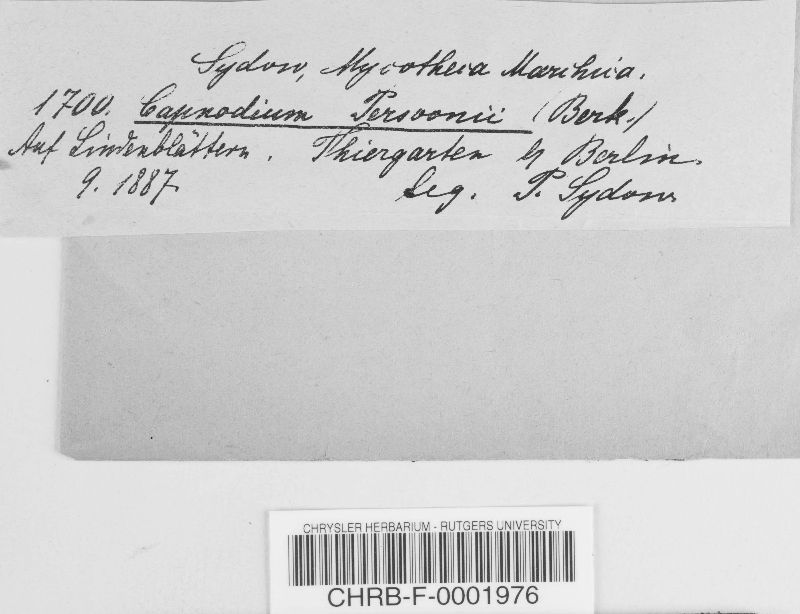 Sydow, Mycotheca Marchica.
1700. Capnodium Persoonii (Berk.)
Auf Lindenblättern. Thiergarten b/ Berlin.
9. 1887. leg. P. Sydow.
CHRYSLER HERBARIUM - RUTGERS UNIVERSITY
CHRB-F-0001976